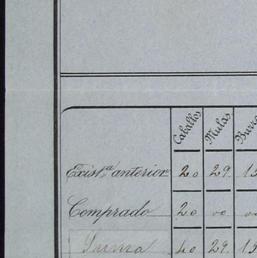 Caballos Mulas Burro
Exist.ª anterior 20 29 13
Comprado 20 00 00
Suma 40 29 13